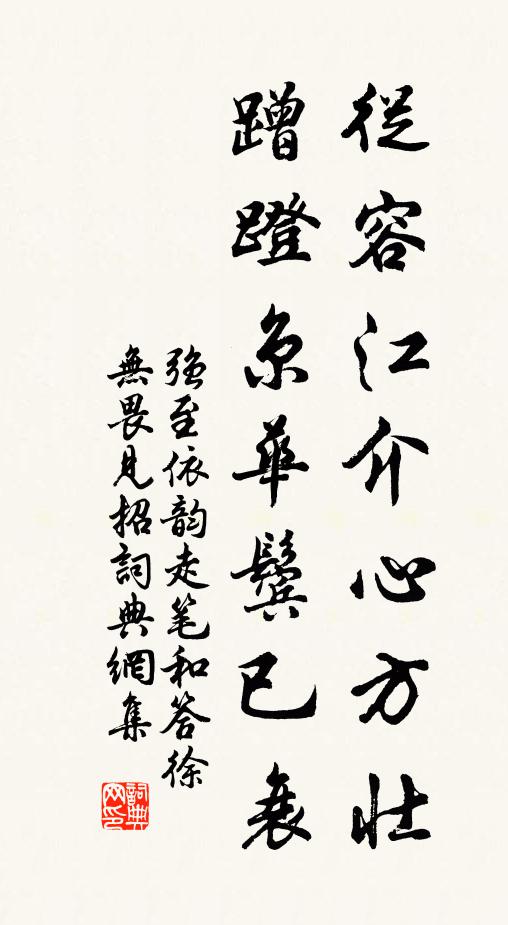 從容江介心方壯
蹭蹬京華鬢已衰
强至依韵走笔和答徐
無畏見招詞典網集
詞典网印